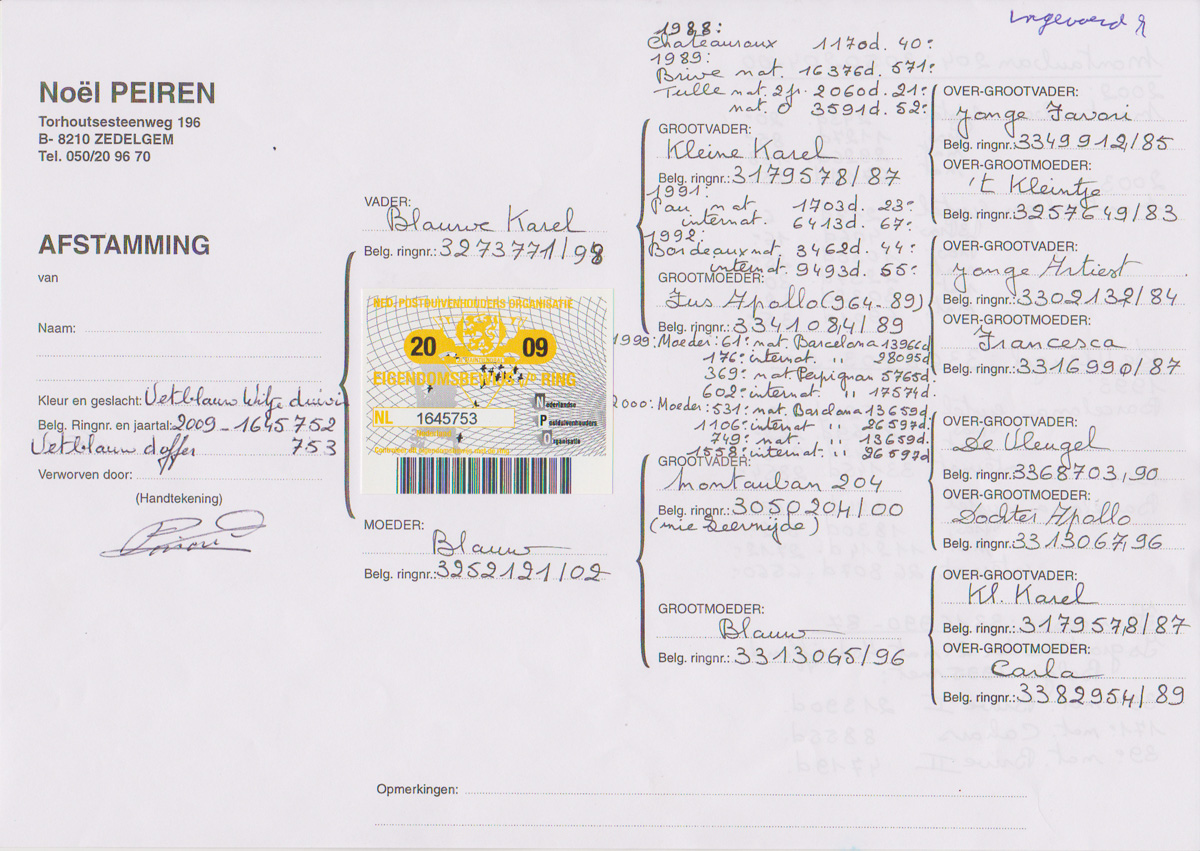 Ingevoerd
Noël PEIREN
Torhoutsesteenweg 196
B- 8210 ZEDELGEM
Tel. 050/20 96 70
AFSTAMMING
van
Naam:
Kleur en geslacht: Vetblauw Witje duivin
Belg. Ringnr. en jaartal: 2009-1645752
Vetblauw doffer 753
Verworven door:
(Handtekening)
VADER:
Blauwe Karel
Belg. ringnr.: 3273771/98
NED. POSTDUIVENHOUDERS ORGANISATIE
20 09
EIGENDOMSBEWIJS V/D RING
NL 1645753
Nederlandse
Postduivenhouders
Organisatie
MOEDER:
Blauw
Belg. ringnr.: 3252121/02
1988:
Chateauroux 1170d. 40e
1989:
Brive nat. 16376d. 571e
Tulle nat. 2jr. 2060d. 21e
nat. O 3591d. 52e
GROOTVADER:
Kleine Karel
Belg. ringnr.: 3179578/87
1991:
Pau nat 1703d. 23e
internat. 6413d. 67e
1992:
Bordeaux nat. 3462d. 44e
internat. 9493d. 55e
GROOTMOEDER:
Zus Apollo (964-89)
Belg. ringnr.: 3341084/89
1999: Moeder: 61e nat. Barcelona 13966d
176e internat. " 28095d
369e nat Perpignan 5765d.
602e internat. " 17574d.
2000: Moeder: 531e nat. Barclona 13659d.
1106e internat " 26597d.
749e nat. " 13659d.
1558e internat. " 26597d
GROOTVADER:
Montauban 204
Belg. ringnr.: 3050204/00
(mie Deernijde)
GROOTMOEDER:
Blauw
Belg. ringnr.: 3313065/96
OVER-GROOTVADER:
Jonge Favori
Belg. ringnr.: 3349912/85
OVER-GROOTMOEDER:
't Kleintje
Belg. ringnr.: 3257649/83
OVER-GROOTVADER:
Jonge Artiest
Belg. ringnr.: 3302132/84
OVER-GROOTMOEDER:
Francesca
Belg. ringnr.: 3316990/87
OVER-GROOTVADER:
De Vleugel
Belg. ringnr.: 3368703,90
OVER-GROOTMOEDER:
Dochter Apollo
Belg. ringnr.: 3313067,96
OVER-GROOTVADER:
Kl. Karel
Belg. ringnr.: 3179578/87
OVER-GROOTMOEDER:
Carla
Belg. ringnr.: 3382954/89
Opmerkingen: